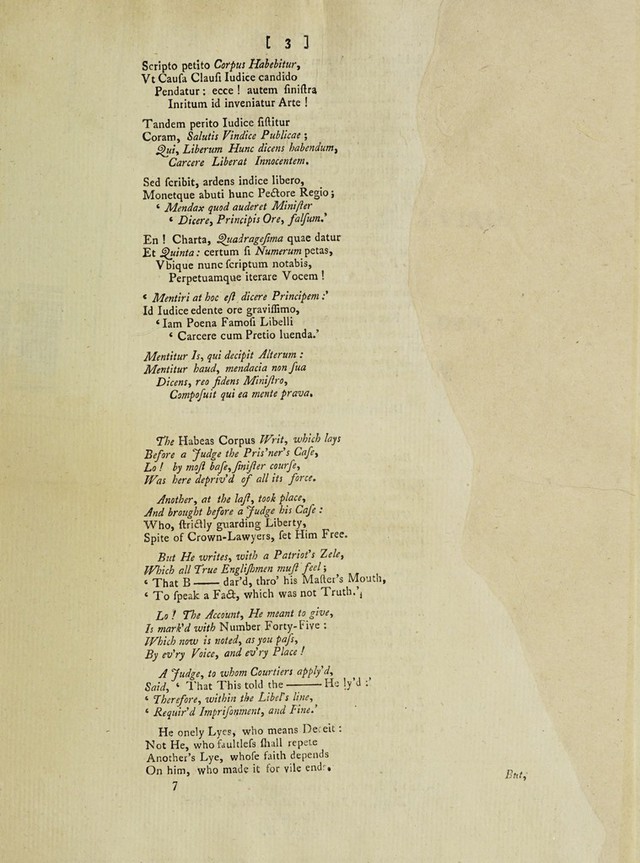 [ 3 ]
Scripto petito Corpus Habebitur,
Vt Cauſa Clauſi Iudice candido
Pendatur: ecce! autem ſiniſtra
Inritum id inveniatur Arte!
Tandem perito Iudice ſiſtitur
Coram, Salutis Vindice Publicae;
Qui, Liberum Hunc dicens habendum,
Carcere Liberat Innocentem.
Sed ſcribit, ardens indice libero,
Monetque abuti hunc Pectore Regio;
‘ Mendax quod auderet Miniſter
‘ Dicere, Principis Ore, falſum.’
En! Charta, Quadrageſima quae datur
Et Quinta: certum ſi Numerum petas,
Vbique nunc ſcriptum notabis,
Perpetuamque iterare Vocem!
‘ Mentiri at hoc eſt dicere Principem:’
Id Iudice edente ore graviſſimo,
‘ Iam Poena Famoſi Libelli
‘ Carcere cum Pretio luenda.’
Mentitur Is, qui decipit Alterum:
Mentitur haud, mendacia non ſua
Dicens, reo fidens Miniſtro,
Compoſuit qui ea mente prava.
The Habeas Corpus Writ, which lays
Before a Judge the Pris'ner's Caſe,
Lo! by moſt baſe, ſiniſter courſe,
Was here depriv'd of all its force.
Another, at the laſt, took place,
And brought before a Judge his Caſe:
Who, ſtrictly guarding Liberty,
Spite of Crown-Lawyers, ſet Him Free.
But He writes, with a Patriot's Zele,
Which all True Engliſhmen muſt feel;
‘ That B—— dar'd, thro' his Maſter's Mouth,
‘ To ſpeak a Fact, which was not Truth.’
Lo! The Account, He meant to give,
Is mark'd with Number Forty-Five:
Which now is noted, as you paſs,
By ev'ry Voice, and ev'ry Place!
A Judge, to whom Courtiers apply'd,
Said, ‘ That This told the ——— He ly'd:’
‘ Therefore, within the Libel's line,
‘ Requir'd Impriſonment, and Fine.’
He onely Lyes, who means Deceit:
Not He, who faultleſs ſhall repete
Another's Lye, whoſe faith depends
On him, who made it for vile ends.
7
But,